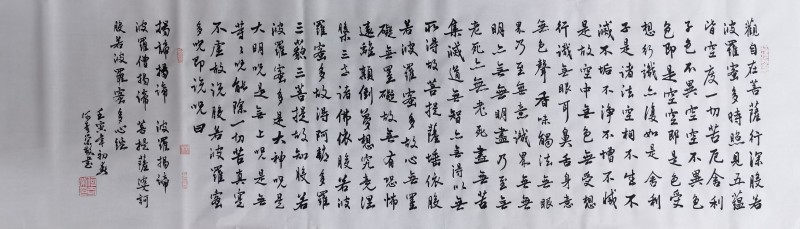 觀自在菩薩行深般若
波羅蜜多時照見五蘊
皆空度一切苦厄舍利
子色不異空空不異色
色即是空空即是色受
想行識亦復如是舍利
子是諸法空相不生不
滅不垢不淨不增不減
是故空中無色無受想
行識無眼耳鼻舌身意
無色聲香味觸法無眼
界乃至無意識界無無
明亦無無明盡乃至無
老死亦無老死盡無苦
集滅道無智亦無得以無
所得故菩提薩埵依般
若波羅蜜多故心無罣
礙無罣礙故無有恐怖
遠離顛倒夢想究竟涅
槃三世諸佛依般若波
羅蜜多故得阿耨多羅
三藐三菩提故知般若
波羅蜜多是大神咒是
大明咒是無上咒是無
等等咒能除一切苦真實
不虛故說般若波羅蜜
多咒即說咒曰
揭諦揭諦 波羅揭諦
波羅僧揭諦 菩提薩婆訶
般若波羅蜜多心經
壬寅年初春
敬書